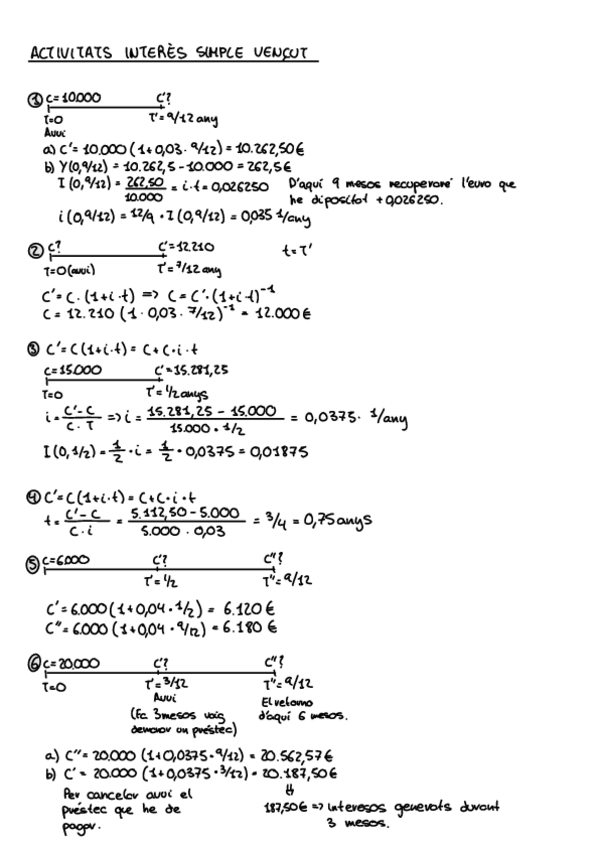 ACTIVITATS INTERÈS SIMPLE VENÇUT
① C=10.000 C'?
T=0 T'=9/12 any
Avui
a) C'= 10.000 (1+0,03· 9/12) = 10.262,50€
b) Y(0,9/12) = 10.262,5 - 10.000 = 262,5€
I (0,9/12) = 262,50/10.000 = i·t = 0,026250 D'aquí 9 mesos recuperaré l'euro que he dipositat + 0,026250.
i (0,9/12) = 12/9 · I (0,9/12) = 0,035 1/any
② C? C'=12.210 t=T'
T=0(avui) T'=7/12 any
C'= C·(1+i·t) => C= C'·(1+i·t)⁻¹
C = 12.210 (1·0,03·7/12)⁻¹ = 12.000€
③ C'=C(1+i·t) = C+C·i·t
C=15.000 C'=15.281,25
T=0 T'=1/2 anys
i = C'-C / C·T => i = 15.281,25 - 15.000 / 15.000·1/2 = 0,0375· 1/any
I (0,1/2) = 1/2 · i = 1/2 · 0,0375 = 0,01875
④ C'=C(1+i·t) = C+C·i·t
t = C'-C / C·i = 5.112,50 - 5.000 / 5.000·0,03 = 3/4 = 0,75 anys
⑤ C=6.000 C'? C''?
T'=1/2 T''=9/12
C'= 6.000 (1+0,04·1/2) = 6.120€
C''= 6.000 (1+0,04·9/12) = 6.180€
⑥ C=20.000 C'? C''?
T=0 T'=3/12 T''=9/12
Avui El retorno
(Fa 3 mesos vaig d'aquí 6 mesos.
demanar un préstec)
a) C''= 20.000 (1+0,0375·9/12) = 20.562,57€
b) C'= 20.000 (1+0,0375·3/12) = 20.187,50€
Per cancelar avui el ⇓
préstec que he de 187,50€ => Interesos generats durant
pagar. 3 mesos.